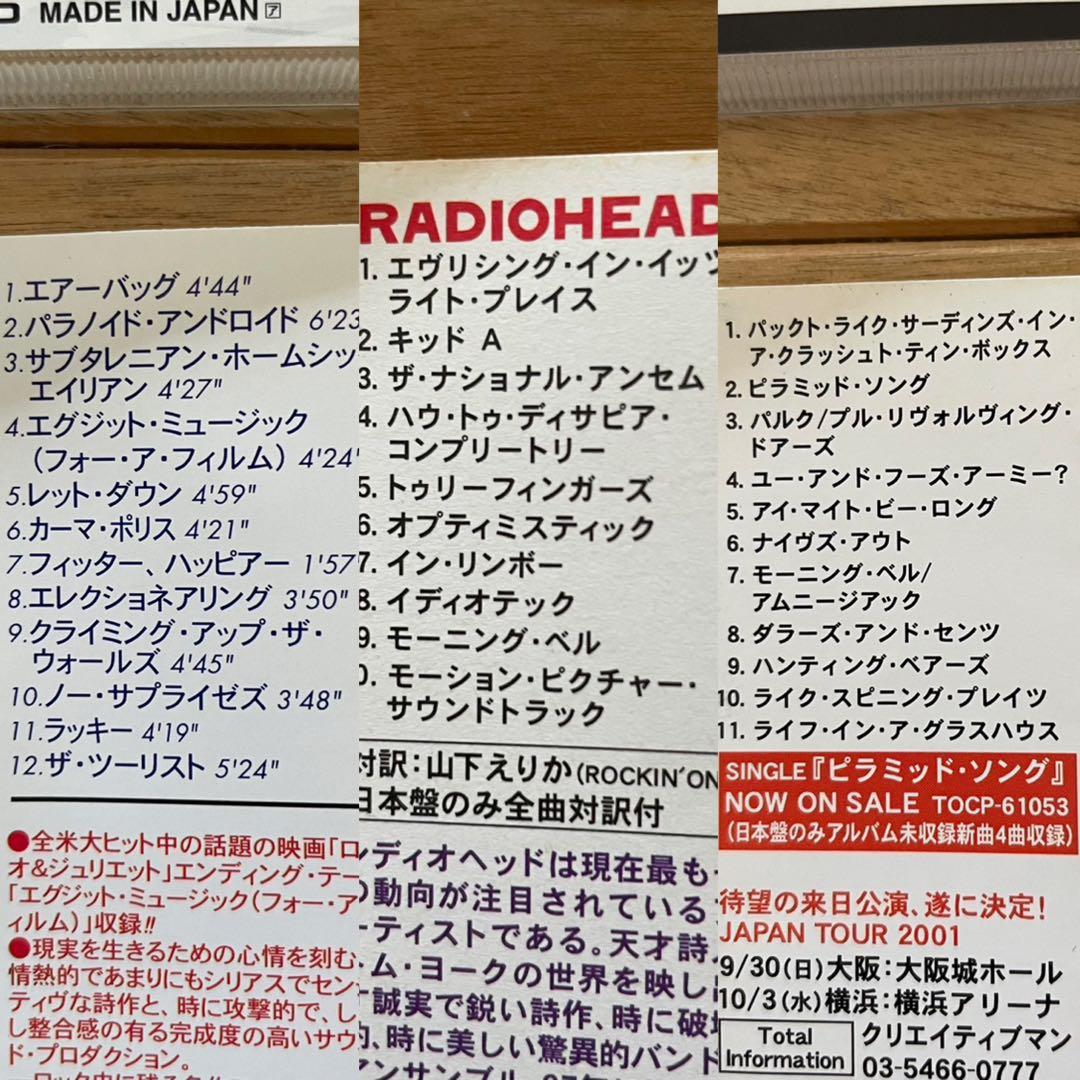 MADE IN JAPAN ア
1.エアーバッグ 4'44"
2.パラノイド・アンドロイド 6'23
3.サブタレニアン・ホームシッ
エイリアン 4'27"
4.エグジット・ミュージック
(フォー・ア・フィルム) 4'24"
5.レット・ダウン 4'59"
6.カーマ・ポリス 4'21"
7.フィッター、ハッピアー 1'57
8.エレクショネアリング 3'50"
9.クライミング・アップ・ザ・
ウォールズ 4'45"
10.ノー・サプライゼズ 3'48"
11.ラッキー 4'19"
12.ザ・ツーリスト 5'24"
●全米大ヒット中の話題の映画「ロ
オ&ジュリエット」エンディング・テー
「エグジット・ミュージック(フォー・ア
ィルム)」収録!!
●現実を生きるための心情を刻む、
情熱的であまりにもシリアスでセン
ティヴな詩作と、時に攻撃的で、し
し整合感の有る完成度の高いサウ
ド・プロダクション。
RADIOHEAD
1. エヴリシング・イン・イッツ
ライト・プレイス
2. キッド A
3. ザ・ナショナル・アンセム
4. ハウ・トゥ・ディサピア・
コンプリートリー
5. トゥリーフィンガーズ
6. オプティミスティック
7. イン・リンボー
8. イディオテック
9. モーニング・ベル
0. モーション・ピクチャー・
サウンドトラック
対訳:山下えりか(ROCKIN'ON
日本盤のみ全曲対訳付
ンディオヘッドは現在最も
の動向が注目されている
ーティストである。天才詩
ム・ヨークの世界を映し
誠実で鋭い詩作、時に破
、時に美しい驚異的バンド
アンサンブル
1. パックト・ライク・サーディンズ・イン・
ア・クラッシュト・ティン・ボックス
2. ピラミッド・ソング
3. パルク/プル・リヴォルヴィング・
ドアーズ
4. ユー・アンド・フーズ・アーミー?
5. アイ・マイト・ビー・ロング
6. ナイヴズ・アウト
7. モーニング・ベル/
アムニージアック
8. ダラーズ・アンド・センツ
9. ハンティング・ベアーズ
10. ライク・スピニング・プレイツ
11. ライフ・イン・ア・グラスハウス
SINGLE『ピラミッド・ソング』
NOW ON SALE TOCP-61053
(日本盤のみアルバム未収録新曲4曲収録)
待望の来日公演、遂に決定!
JAPAN TOUR 2001
9/30(日)大阪:大阪城ホール
10/3(水)横浜:横浜アリーナ
Total Information クリエイティブマン
03-5466-0777